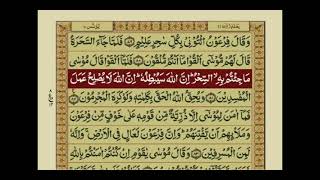 یونس ۱۰
یعتذرون ۱۱
وَقَالَ فِرْعَوْنُ ائْتُوْنِیْ بِكُلِّ سٰحِرٍ عَلِیْمٍ فَلَمَّا جَآءَ السَّحَرَةُ
قَالَ لَهُمْ مُّوْسٰۤی اَلْقُوْا مَاۤ اَنْتُمْ مُّلْقُوْنَ فَلَمَّاۤ اَلْقَوْا قَالَ مُوْسٰی
مَا جِئْتُمْ بِهِ ۙ السِّحْرُ ؕ اِنَّ اللّٰهَ سَیُبْطِلُهٗ ؕ اِنَّ اللّٰهَ لَا یُصْلِحُ عَمَلَ
الْمُفْسِدِیْنَ وَیُحِقُّ اللّٰهُ الْحَقَّ بِكَلِمٰتِهٖ وَلَوْ كَرِهَ الْمُجْرِمُوْنَ فَمَاۤ
اٰمَنَ لِمُوْسٰۤی اِلَّا ذُرِّیَّةٌ مِّنْ قَوْمِهٖ عَلٰی خَوْفٍ مِّنْ فِرْعَوْنَ
وَمَلَا۟ئِهِمْ اَنْ یَّفْتِنَهُمْ ؕ وَاِنَّ فِرْعَوْنَ لَعَالٍ فِی الْاَرْضِ ۚ وَاِنَّهٗ
لَمِنَ الْمُسْرِفِیْنَ وَقَالَ مُوْسٰی یٰقَوْمِ اِنْ كُنْتُمْ اٰمَنْتُمْ بِاللّٰهِ